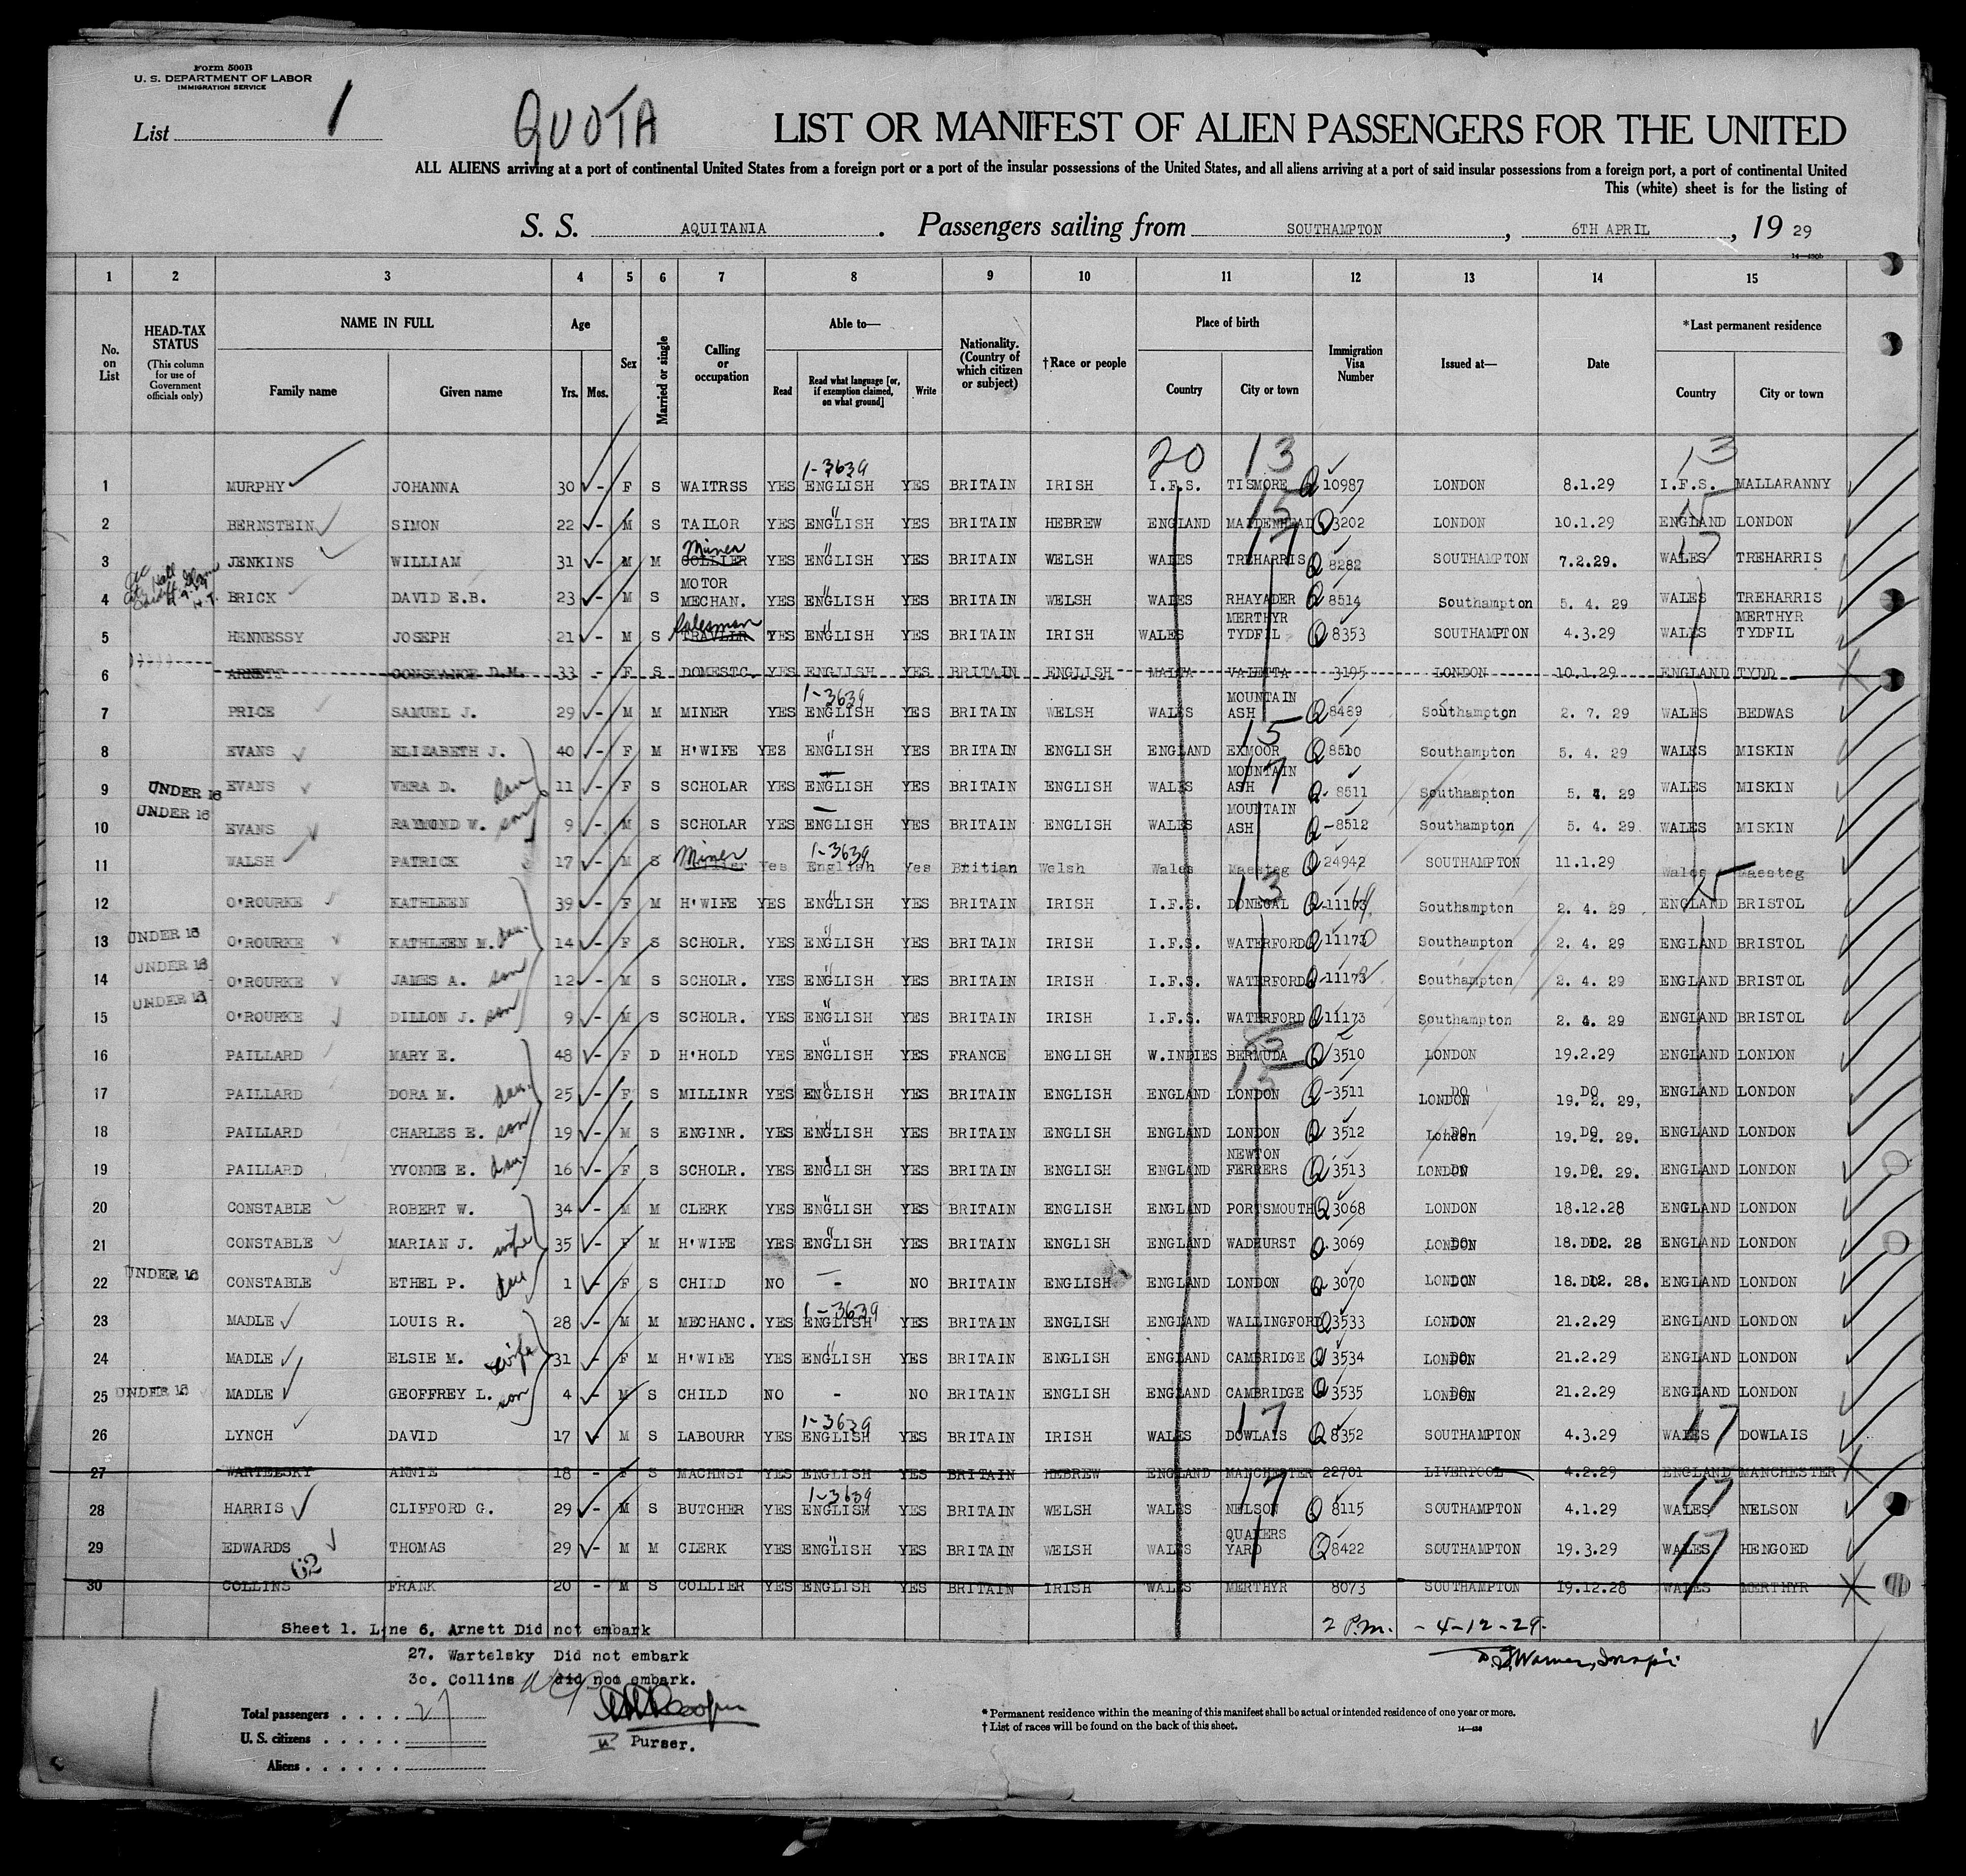 Form 500B
U. S. DEPARTMENT OF LABOR
IMMIGRATION SERVICE
List 1
QUOTA
LIST OR MANIFEST OF ALIEN PASSENGERS FOR THE UNITED
ALL ALIENS arriving at a port of continental United States from a foreign port or a port of the insular possessions of the United States, and all aliens arriving at a port of said insular possessions from a foreign port, a port of continental United
This (white) sheet is for the listing of
S. S. AQUITANIA. Passengers sailing from SOUTHAMPTON, 6TH APRIL, 19 29
1 2 3 4 5 6 7 8 9 10 11 12 13 14 15
No. on List
HEAD-TAX STATUS (This column for use of Government officials only)
NAME IN FULL
Family name Given name
Age
Yrs. Mos.
Sex
Married or single
Calling or occupation
Able to—
Read
Read what language [or, if exemption claimed, on what ground]
Write
Nationality. (Country of which citizen or subject)
†Race or people
Place of birth
Country City or town
Immigration Visa Number
Issued at—
Date
*Last permanent residence
Country City or town
20 13 13
1-3639
1 MURPHY JOHANNA 30 - F S WAITRSS YES ENGLISH YES BRITAIN IRISH I.F.S. TISMORE Q 10987 LONDON 8.1.29 I.F.S. MALLARANNY
15 15
2 BERNSTEIN SIMON 22 - M S TAILOR YES ENGLISH YES BRITAIN HEBREW ENGLAND MAIDENHEAD Q 3202 LONDON 10.1.29 ENGLAND LONDON
Miner 17 17
3 JENKINS WILLIAM 31 - M M COLLIER YES ENGLISH YES BRITAIN WELSH WALES TREHARRIS Q 8282 SOUTHAMPTON 7.2.29. WALES TREHARRIS
4 BRICK DAVID E.B. 23 - M S MOTOR MECHAN. YES ENGLISH YES BRITAIN WELSH WALES RHAYADER Q 8514 Southampton 5. 4. 29 WALES TREHARRIS
Salesman
5 HENNESSY JOSEPH 21 - M S TRAVLLR YES ENGLISH YES BRITAIN IRISH WALES MERTHYR TYDFIL Q 8353 SOUTHAMPTON 4.3.29 WALES MERTHYR TYDFIL
6 ARNETT CONSTANCE D.M. 33 - F S DOMESTC. YES ENGLISH YES BRITAIN ENGLISH MALTA VALETTA 3195 LONDON 10.1.29 ENGLAND TYDD
1-3639
7 PRICE SAMUEL J. 29 - M M MINER YES ENGLISH YES BRITAIN WELSH WALES MOUNTAIN ASH Q 8489 Southampton 2. 7. 29 WALES BEDWAS
15
8 EVANS ELIZABETH J. 40 - F M H'WIFE YES ENGLISH YES BRITAIN ENGLISH ENGLAND EXMOOR Q 8510 Southampton 5. 4. 29 WALES MISKIN
17
9 UNDER 16 EVANS VERA D. dau 11 - F S SCHOLAR YES ENGLISH YES BRITAIN ENGLISH WALES MOUNTAIN ASH Q 8511 Southampton 5. 4. 29 WALES MISKIN
10 UNDER 16 EVANS RAYMOND W. son 9 - M S SCHOLAR YES ENGLISH YES BRITAIN ENGLISH WALES MOUNTAIN ASH Q 8512 Southampton 5. 4. 29 WALES MISKIN
Miner 1-3639
11 WALSH PATRICK 17 - M S Collier Yes English Yes Britian Welsh Wales Maesteg Q 24942 SOUTHAMPTON 11.1.29 Wales Maesteg
13 15
12 O'ROURKE KATHLEEN 39 - F M H'WIFE YES ENGLISH YES BRITAIN IRISH I.F.S. DONEGAL Q 11169 Southampton 2. 4. 29 ENGLAND BRISTOL
13 UNDER 16 O'ROURKE KATHLEEN M. dau. 14 - F S SCHOLR. YES ENGLISH YES BRITAIN IRISH I.F.S. WATERFORD Q 11170 Southampton 2. 4. 29 ENGLAND BRISTOL
14 UNDER 16 O'ROURKE JAMES A. son 12 - M S SCHOLR. YES ENGLISH YES BRITAIN IRISH I.F.S. WATERFORD Q 11172 Southampton 2. 4. 29 ENGLAND BRISTOL
15 UNDER 16 O'ROURKE DILLON J. son 9 - M S SCHOLR. YES ENGLISH YES BRITAIN IRISH I.F.S. WATERFORD Q 11173 Southampton 2. 4. 29 ENGLAND BRISTOL
16 PAILLARD MARY E. 48 - F D H'HOLD YES ENGLISH YES FRANCE ENGLISH W.INDIES BERMUDA Q 3510 LONDON 19.2.29 ENGLAND LONDON
15
17 PAILLARD DORA M. dau. 25 - F S MILLINR YES ENGLISH YES BRITAIN ENGLISH ENGLAND LONDON Q 3511 DO LONDON DO 19. 2. 29. ENGLAND LONDON
18 PAILLARD CHARLES E. son 19 - M S ENGINR. YES ENGLISH YES BRITAIN ENGLISH ENGLAND LONDON Q 3512 DO London DO 19. 2. 29. ENGLAND LONDON
19 PAILLARD YVONNE E. dau. 16 - F S SCHOLR. YES ENGLISH YES BRITAIN ENGLISH ENGLAND NEWTON FERRERS Q 3513 LONDON 19. 2. 29. ENGLAND LONDON
20 CONSTABLE ROBERT W. 34 - M M CLERK YES ENGLISH YES BRITAIN ENGLISH ENGLAND PORTSMOUTH Q 3068 LONDON 18.12.28 ENGLAND LONDON
21 CONSTABLE MARIAN J. wife 35 - F M H'WIFE YES ENGLISH YES BRITAIN ENGLISH ENGLAND WADHURST Q 3069 LONDON 18. 12. 28 ENGLAND LONDON
22 UNDER 16 CONSTABLE ETHEL P. dau 1 - F S CHILD NO - NO BRITAIN ENGLISH ENGLAND LONDON Q 3070 LONDON 18. 12. 28. ENGLAND LONDON
1-3639
23 MADLE LOUIS R. 28 - M M MECHANC. YES ENGLISH YES BRITAIN ENGLISH ENGLAND WALLINGFORD Q 3533 LONDON 21.2.29 ENGLAND LONDON
24 MADLE ELSIE M. wife 31 - F M H'WIFE YES ENGLISH YES BRITAIN ENGLISH ENGLAND CAMBRIDGE Q 3534 LONDON 21.2.29 ENGLAND LONDON
25 UNDER 16 MADLE GEOFFREY L. son 4 - M S CHILD NO - NO BRITAIN ENGLISH ENGLAND CAMBRIDGE Q 3535 LONDON 21.2.29 ENGLAND LONDON
1-3639 17 17
26 LYNCH DAVID 17 M S LABOURR YES ENGLISH YES BRITAIN IRISH WALES DOWLAIS Q 8352 SOUTHAMPTON 4.3.29 WALES DOWLAIS
27 WARTELSKY ANNIE 18 - F S MACHNST YES ENGLISH YES BRITAIN HEBREW ENGLAND MANCHESTER 22701 LIVERPOOL 4.2.29 ENGLAND MANCHESTER
1-3639 17 17
28 HARRIS CLIFFORD G. 29 - M S BUTCHER YES ENGLISH YES BRITAIN WELSH WALES NELSON Q 8115 SOUTHAMPTON 4.1.29 WALES NELSON
17
29 EDWARDS THOMAS 29 - M M CLERK YES ENGLISH YES BRITAIN WELSH WALES QUAKERS YARD Q 8422 SOUTHAMPTON 19.3.29 WALES HENGOED
30 COLLINS FRANK 20 - M S COLLIER YES ENGLISH YES BRITAIN IRISH WALES MERTHYR 8073 SOUTHAMPTON 19.12.28 WALES MERTHYR
2 P.M. - 4-12-29.
Sheet 1. Line 6. Arnett Did not embark
27. Wartelsky Did not embark
30. Collins did not embark.
Total passengers . . . . 27
U. S. citizens . . . . .
Aliens . . . . . .
Purser.
* Permanent residence within the meaning of this manifest shall be actual or intended residence of one year or more.
† List of races will be found on the back of this sheet.